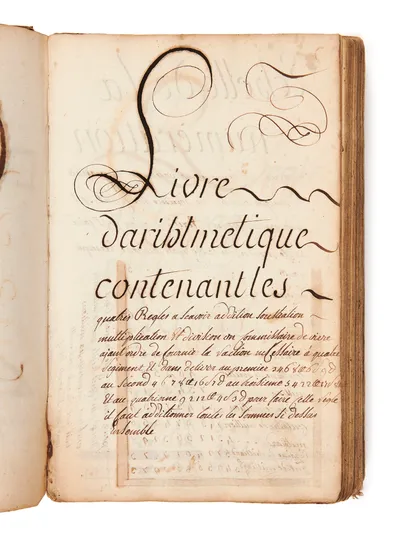 Livre
darihtmetique
contenant les
quatres Regles a scavoir addition soustraction
multiplication Et division un Commissaire de vivre
ajant ordre de fournir la ration necessaire a quatre
Regiment Il dans delivre au premier 3468
au second 4678 au troisieme 5432
Et au quatrieme 9212 pour faire cette regle
il faut additionner toutes les sommes cy dessus
ensemble